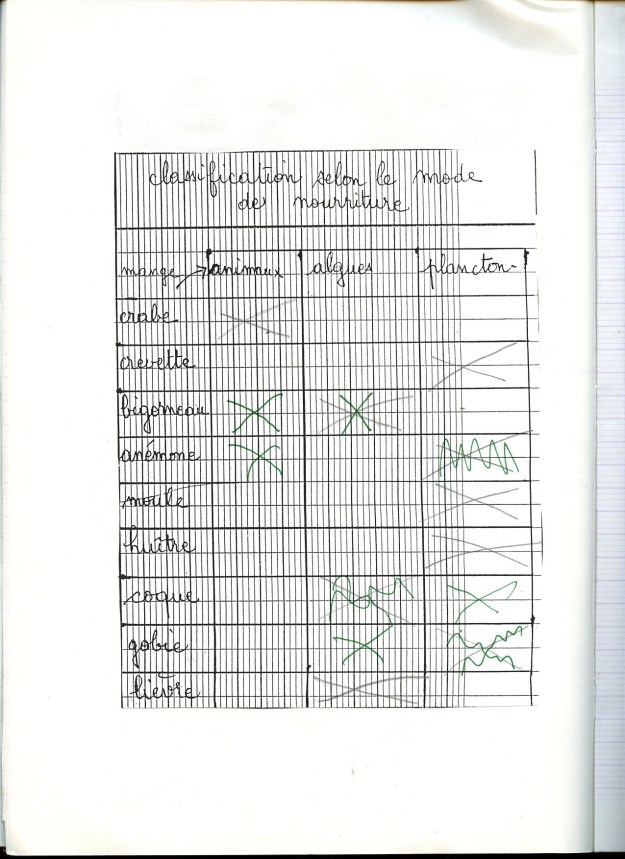 classification selon le mode
de nourriture
mange → animaux algues plancton
crabe
crevette
bigorneau
anémone
moule
huître
coque
gobie
lièvre